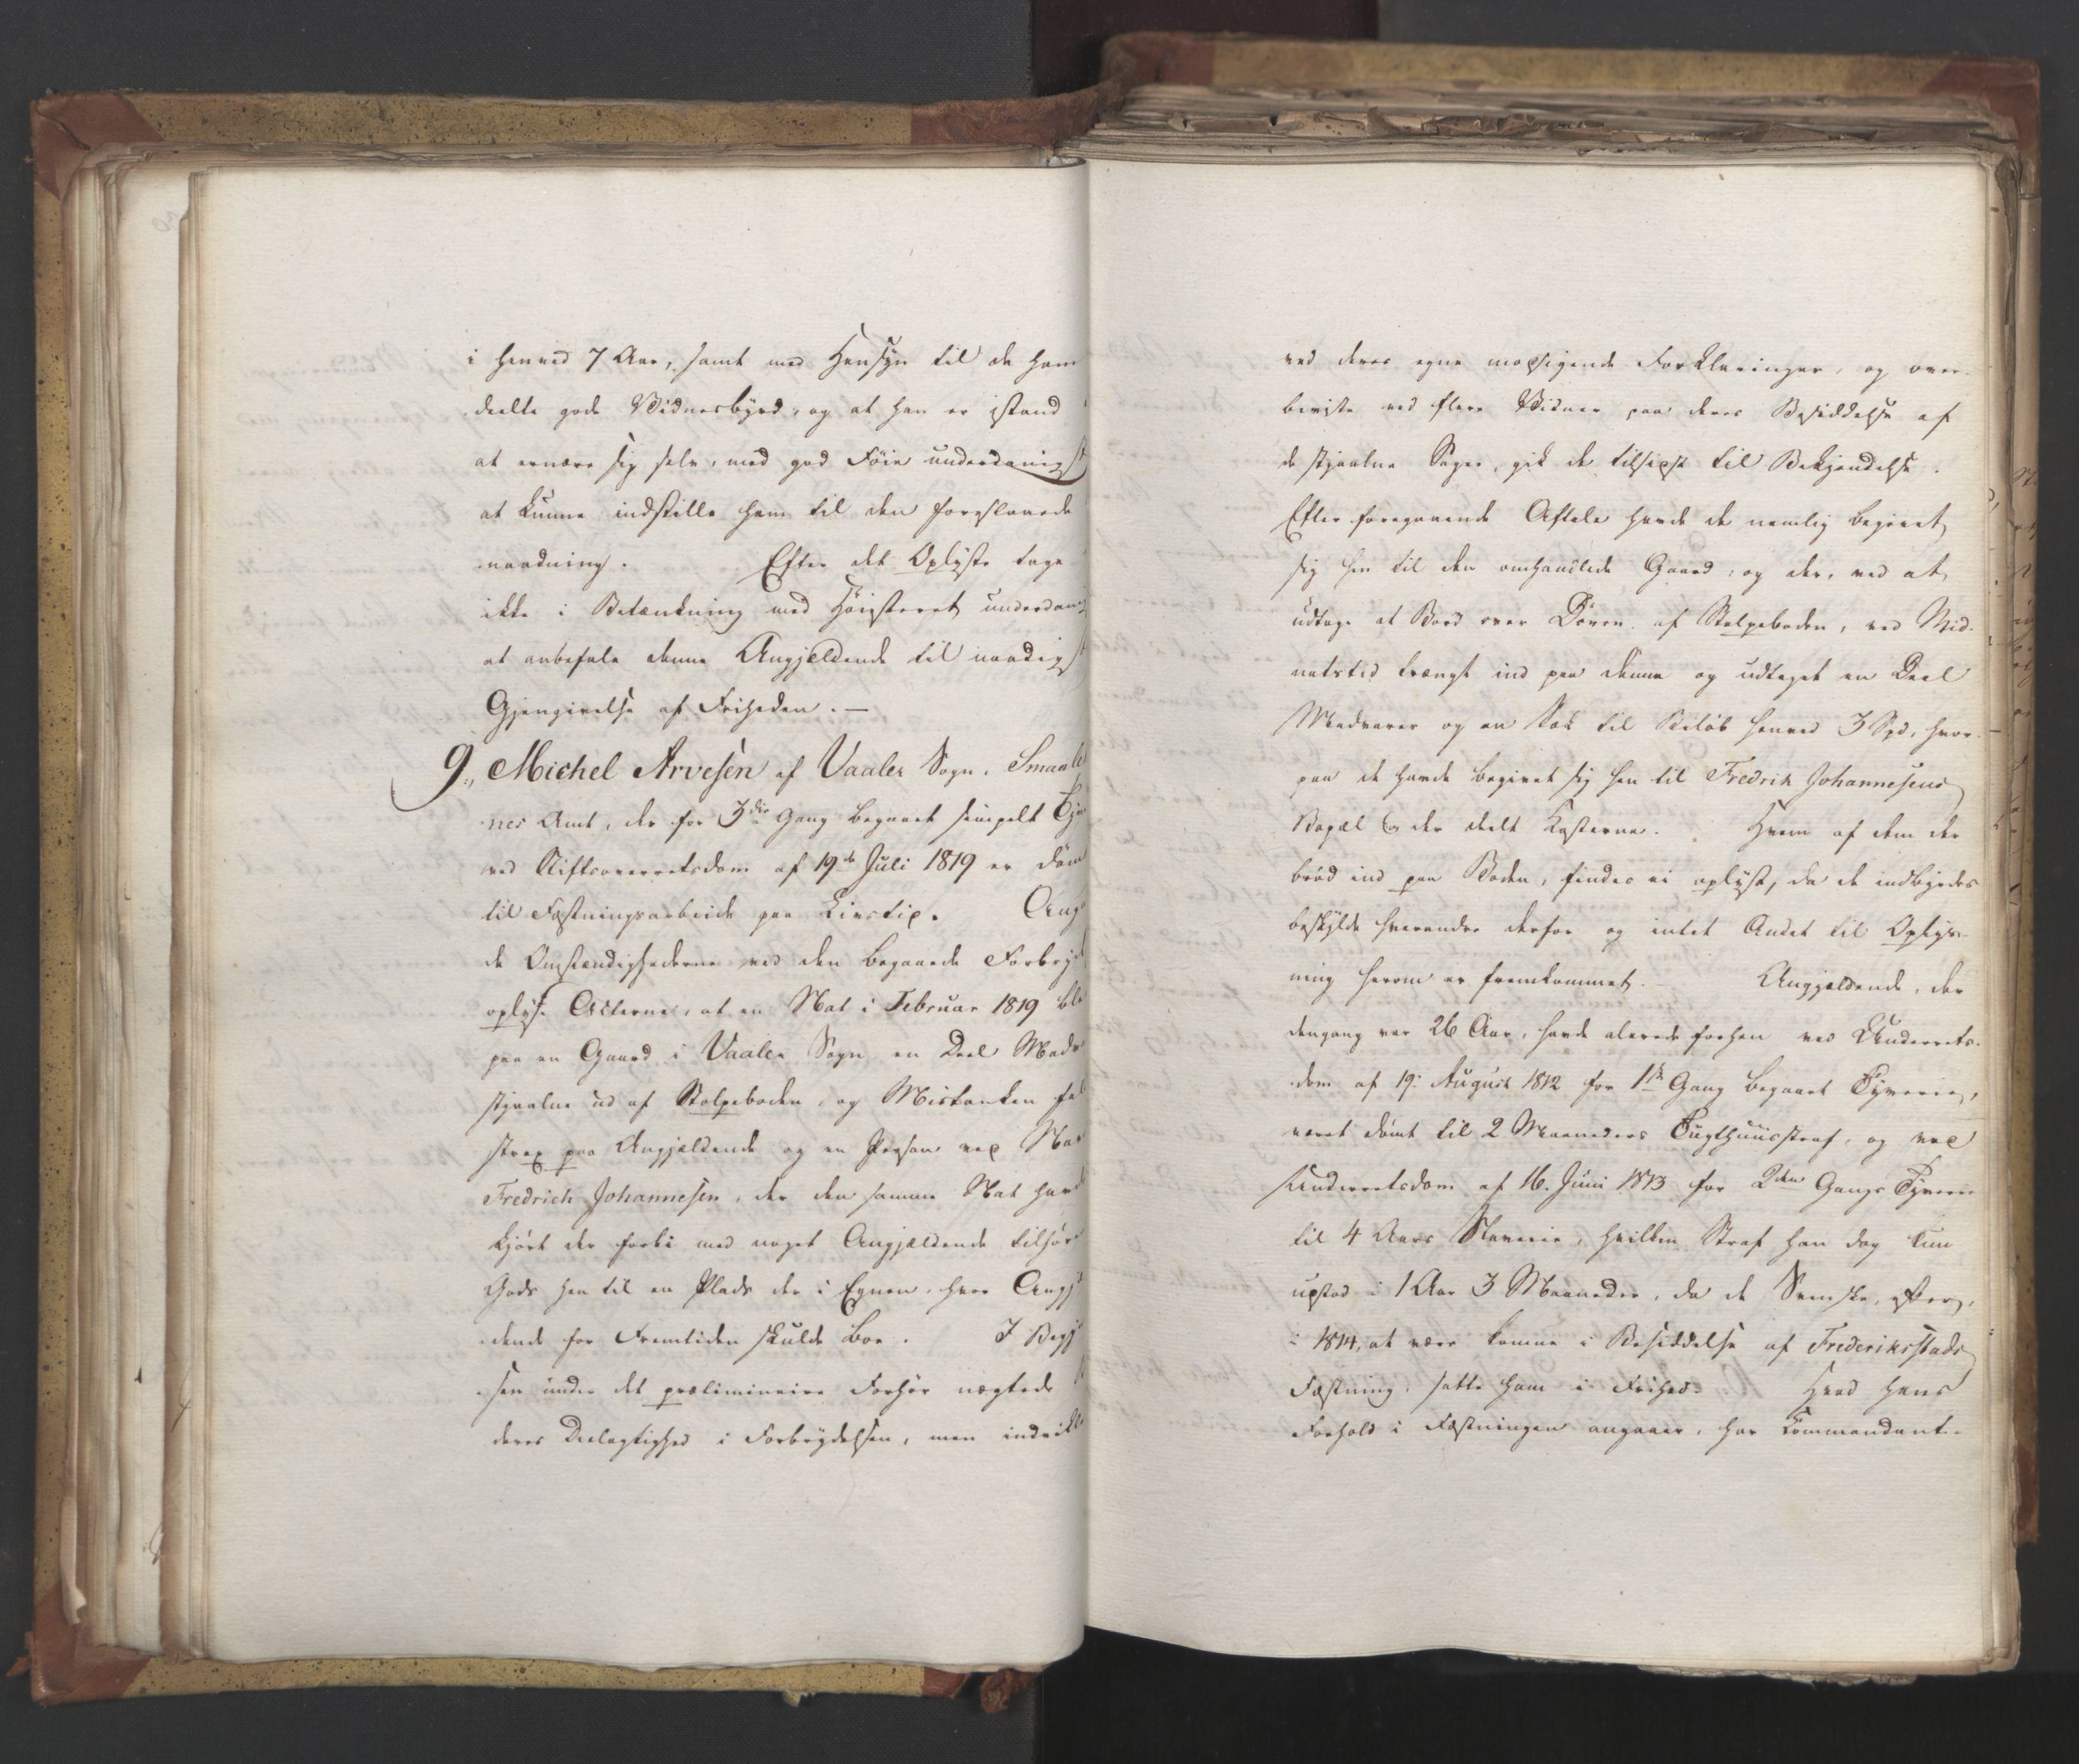 i henved 7 Aar, samt med Hensyn til de ham
deelte gode Vidnesbyrd, og at han er istand
at ernære sig selv, med god Føie underdanigst
at kunne indstille ham til den foreslaaede
naadning. Efter det Oplyste tage
ikke i Betænkning med Høiesteret underdanig
at anbefale denne Angjældende til naadigst
Gjengivelse af Friheden. —
9., Michel Arvesen af Vaaler Sogn, Smaale
nes Amt, der for 3die Gang begaaet simpelt Tyv
ved Stiftsoverretsdom af 19de Juli 1819 er dømt
til Fæstningsarbeide paa Livstid. Ang
de Omstændighederne ved den begaaede Forbryd
oplyse Acterne, at en Nat i Februar 1819 ble
paa en Gaard i Vaaler Sogn en Deel Madv
stjaalne ud af Stolpeboden, og Mistanken fal
strax paa Angjældende og en Person ved Nav
Fredrich Johannesen, der den samme Nat havd
kjørt der forbi med noget Angjældende tilhøre
Gods hen til en Plads der i Egnen, hvor Angjæ
dende for Fremtiden skulde boe. I Begy
sen under det præliminaire Forhør nægtede
deres Deelagtighed i Forbrydelsen, men indvikle
ved deres egne modsigende Forklaringer, og over
beviste ved flere Vidner paa deres Besiddelse af
de stjaalne Sager, gik de tilsidst til Bekjendelse.
Efter foregaaende Aftale havde de nemlig begivet
sig hen til den omhandlede Gaard, og der, ved at
udtage et Bord over Døren af Stolpeboden, ved Mid-
natstid trængt ind paa denne og udtaget en Deel
Madvarer og en Sæk til Beløb henved 3 Spd, hvor
paa de havde begivet sig hen til Fredrik Johannesens
Bopæl og der deelt Kosterne. Hvem af dem der
brød ind paa Boden, findes ei oplyst, da de indbyrdes
beskylde hverandre derfor og intet Andet til Oplys-
ning herom er fremkommet. Angjældende, der
dengang var 26 Aar, havde alerede forhen ved Underrets-
dom af 19. August 1812 for 1ste Gang begaaet Tyverie,
været dømt til 2 Maaneders Tugthuusstraf, og ved
Underretsdom af 16. Juni 1813 for 2den Gangs Tyverie
til 4 Aars Slaverie, hvilken Straf han dog kun
udstod i 1 Aar 3 Maaneder, da de Svenske, efter,
i 1814, at være komne i Besiddelse af Frederiksstads
Fæstning, satte ham i Frihed. Hvad hans
Forhold i Fæstningen angaaer, har Kommandant-